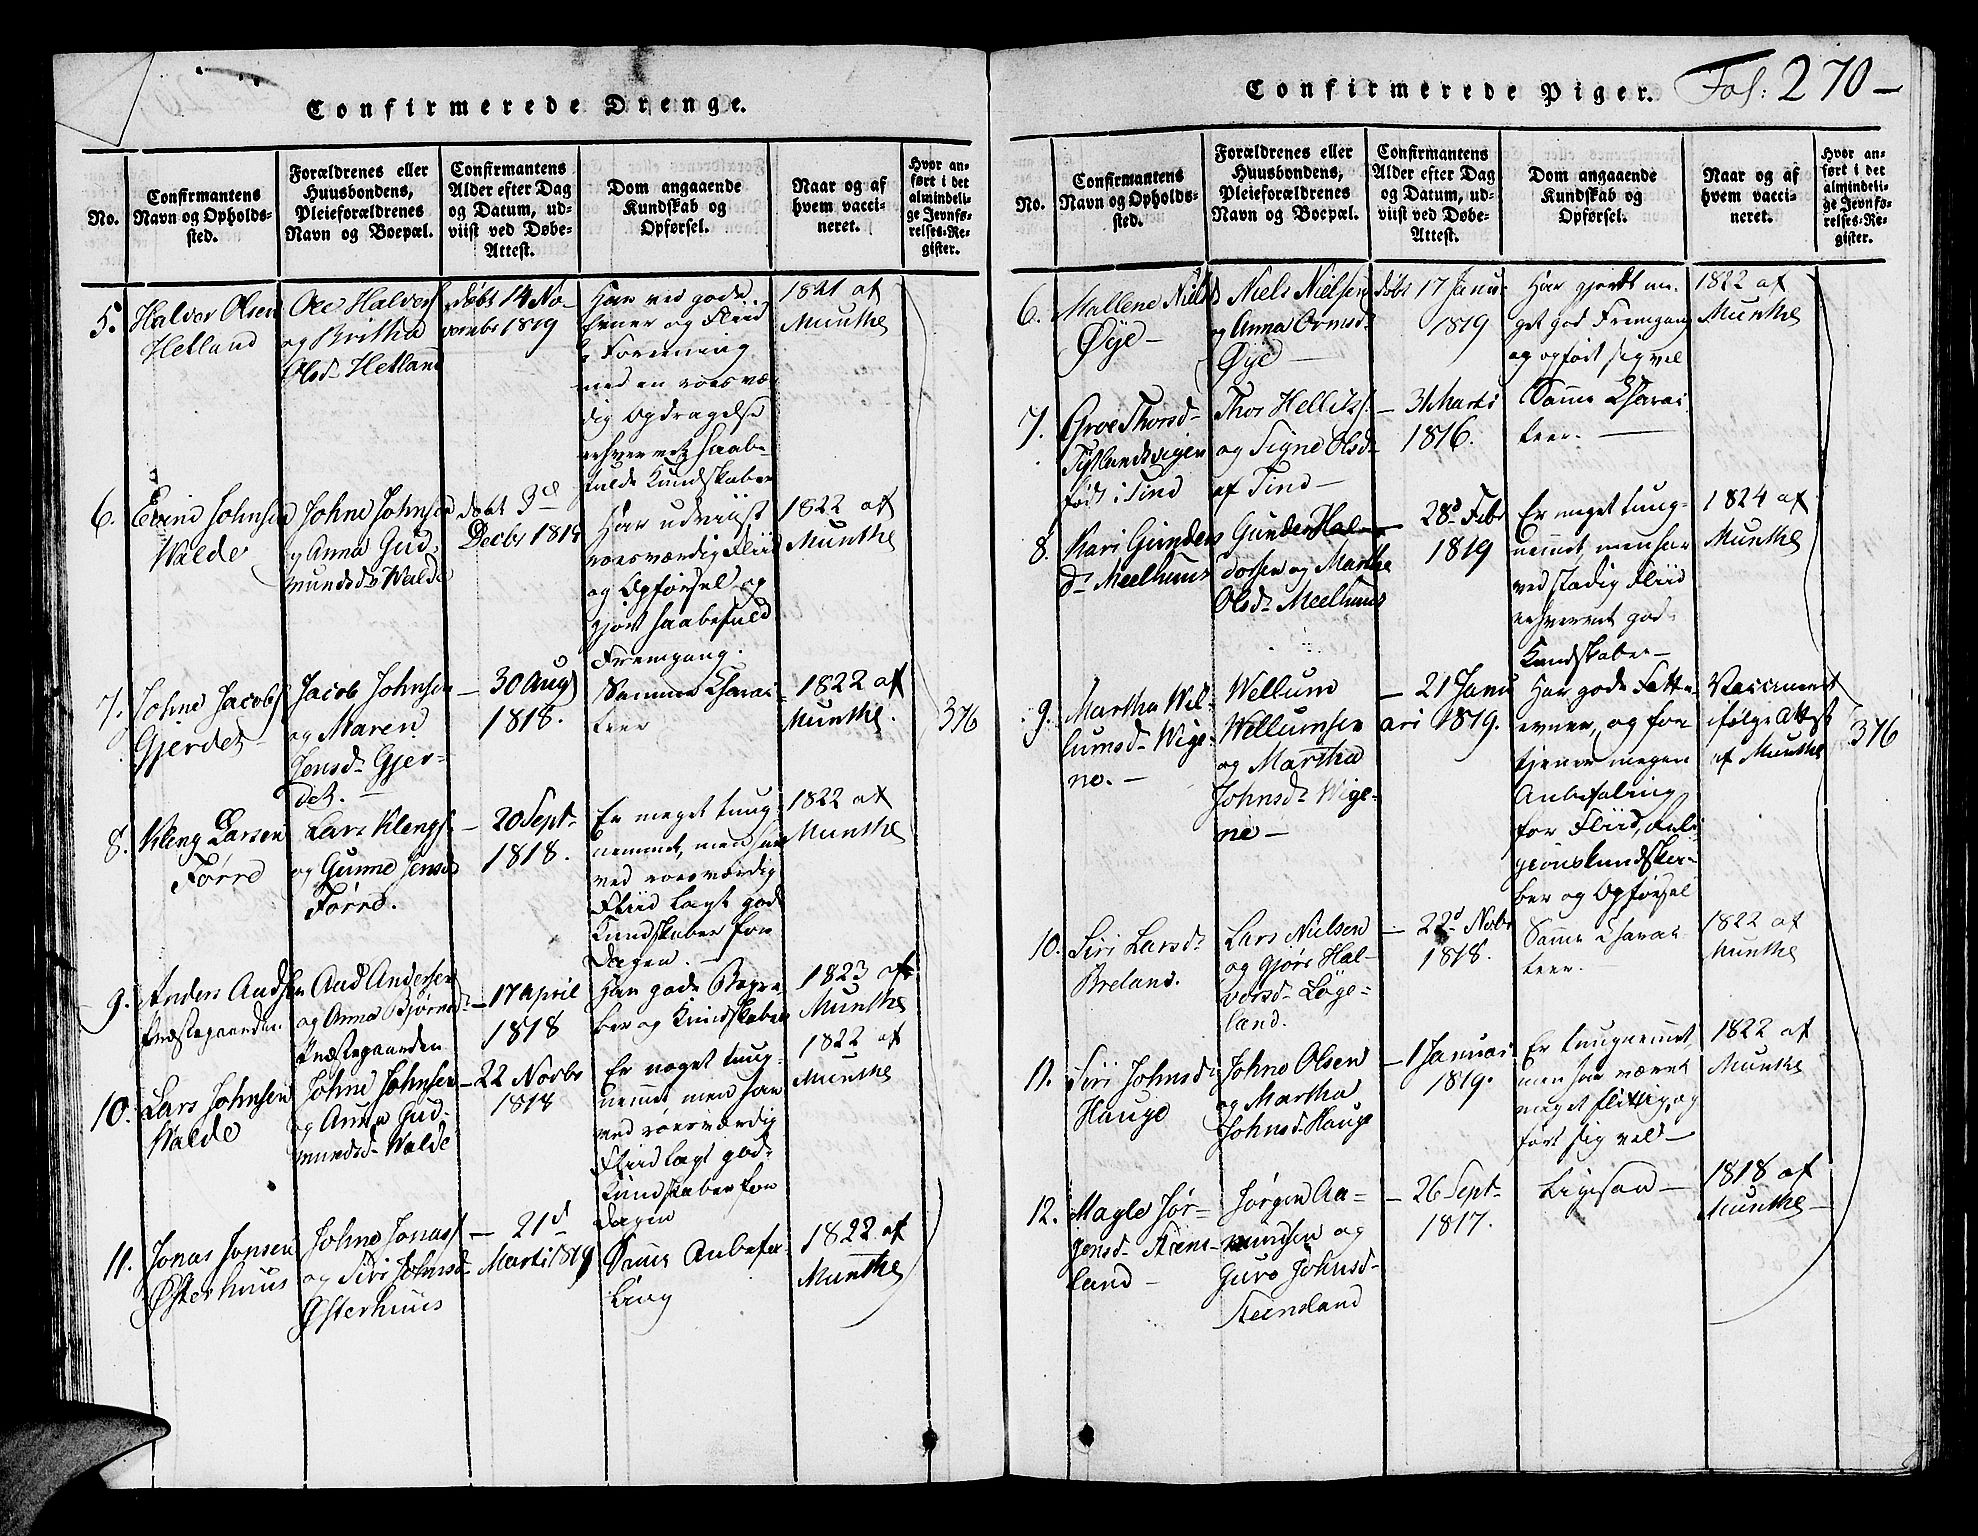 Confirmerede Drenge.
No.
Confirmantens
Navn og Opholds-
sted.
Forældrenes eller
Huusbondens,
Pleieforældrenes
Navn og Boepæl.
Confirmantens
Alder efter Dag
og Datum, ud-
viist ved Døbe-
Attest.
Dom angaaende
Kundskab og
Opførsel.
Naar og af
hvem vacci-
neret.
Hvor an-
ført i det
almindeli-
ge Jevnfø-
relses-Re-
gister.
5.
Halvor Olsen
Hetland
Ole Halvors
og Britha
Olsd. Hetland
døbt 14 No-
vembr 1819
Har ved gode
Evner og Fliid
i Forening
med en roesvær-
dig Opdragelse
erhvervet haabe-
fulde Kundskaber
1821 af
Munthe
6.
Evind Johnsen
Walde
Johne Johnsen
og Anna Gud-
mundsdr Walde
døbt 3d
Decbr 1819
Har udviist
roesværdig Fliid
og Opførsel og
gjort haabefuld
Fremgang.
1822 af
Munthe
7.
Johne Jacobs
Gjerdet
Jacob Johnsen
og Maren
Jensd. Gjer-
det.
30 Aug
1818.
Samme Charac-
teer
1822 af
Munthe.
376
8.
Kleng Larsen
Førre
Lars Klengs
og Gunne Jensd
Førre.
20 Sept.
1818.
Er meget tung-
nemmet, men har
ved roesværdig
Fliid lagt gode
Kundskaber for
Dagen.
1822 af
Munthe
9.
Anders Audsen
Præstegaarden
Aud Andersen
og Anna Bjørnsd.
Præstegaarden
17 April
1818
Har gode Begre-
ber og Kundskaber
1823 af
Munthe
10.
Lars Johnsen
Walde
Johne Johnsen
og Anna Gud-
mundsd. Walde
22 Novbr
1818
Er noget tung-
nemmet men har
ved roesværdig
Fliid lagt gode
Kundskaber for
Dagen
1822 af
Munthe
11.
Jonas Jonsen
Østerhuus
Johne Jonas
og Siri Johnsd.
Østerhuus
21d
Marti 1819
Samme Anbefa-
ling
1822 af
Munthe
Confirmerede Piger.
Fol: 270
No.
Confirmantens
Navn og Opholds-
sted.
Forældrenes eller
Huusbondens,
Pleieforældrenes
Navn og Boepæl.
Confirmantens
Alder efter Dag
og Datum, ud-
viist ved Døbe-
Attest.
Dom angaaende
Kundskab og
Opførsel.
Naar og af
hvem vacci-
neret.
Hvor an-
ført i det
almindeli-
ge Jevnfø-
relses-Re-
gister.
6.
Mallene Nielsd
Øye
Niels Nielsen
og Anna Ormsd.
Øye
døbt 17 Janu.
1819
Har gjordt me-
get god Fremgang
og opført sig vel
1822 af
Munthe
7.
Groe Thorsd.
født i Tind
Thor Helliks
og Signe Olsd.
af Tind
31 Marti
1816.
Samme Charac-
teer.
8.
Kari Gunders
d. Meelhuus
Gunder Hal-
dorsen og Marthe
Olsd. Meelhuus
28d Febr
1819
Er meget tung-
nemmet, men har
ved stadig Fliid
erhvervet gode
Kundskaber
1824 af
Munthe
9.
Martha Wel-
lumsd. Wige-
ne.
Wellum
Wellumsen
og Martha
Johnsd. Wige-
ne
21 Janu
ari 1819.
Har gode Fatte-
evner, og for-
tjener megen
Anbefaling
for Fliid, Reli-
gionskundska-
ber og Opførsel
Vaccineret
ifølge Attest
af Munthe
376
10.
Siri Larsd.
Breland.
Lars Nielsen
og Gjøre Hal-
vorsd. Løge-
land.
22d Nobr
1818.
Samme Charac-
teer.
1822 af
Munthe
11.
Siri Johnsd.
Hauge
Johne Olsen
og Martha
Johnsd. Hauge
1 Januari
1819.
Er tungnemmet,
men har været
meget flittig, og
ført sig vel
1822 af
Munthe
12.
Magle Jør-
gensd. Steens-
land
Jørgen Aa-
mundsen og
Guro Johnsd.
Steensland
26 Sept.
1817.
Ligesaa
1818 af
Munthe